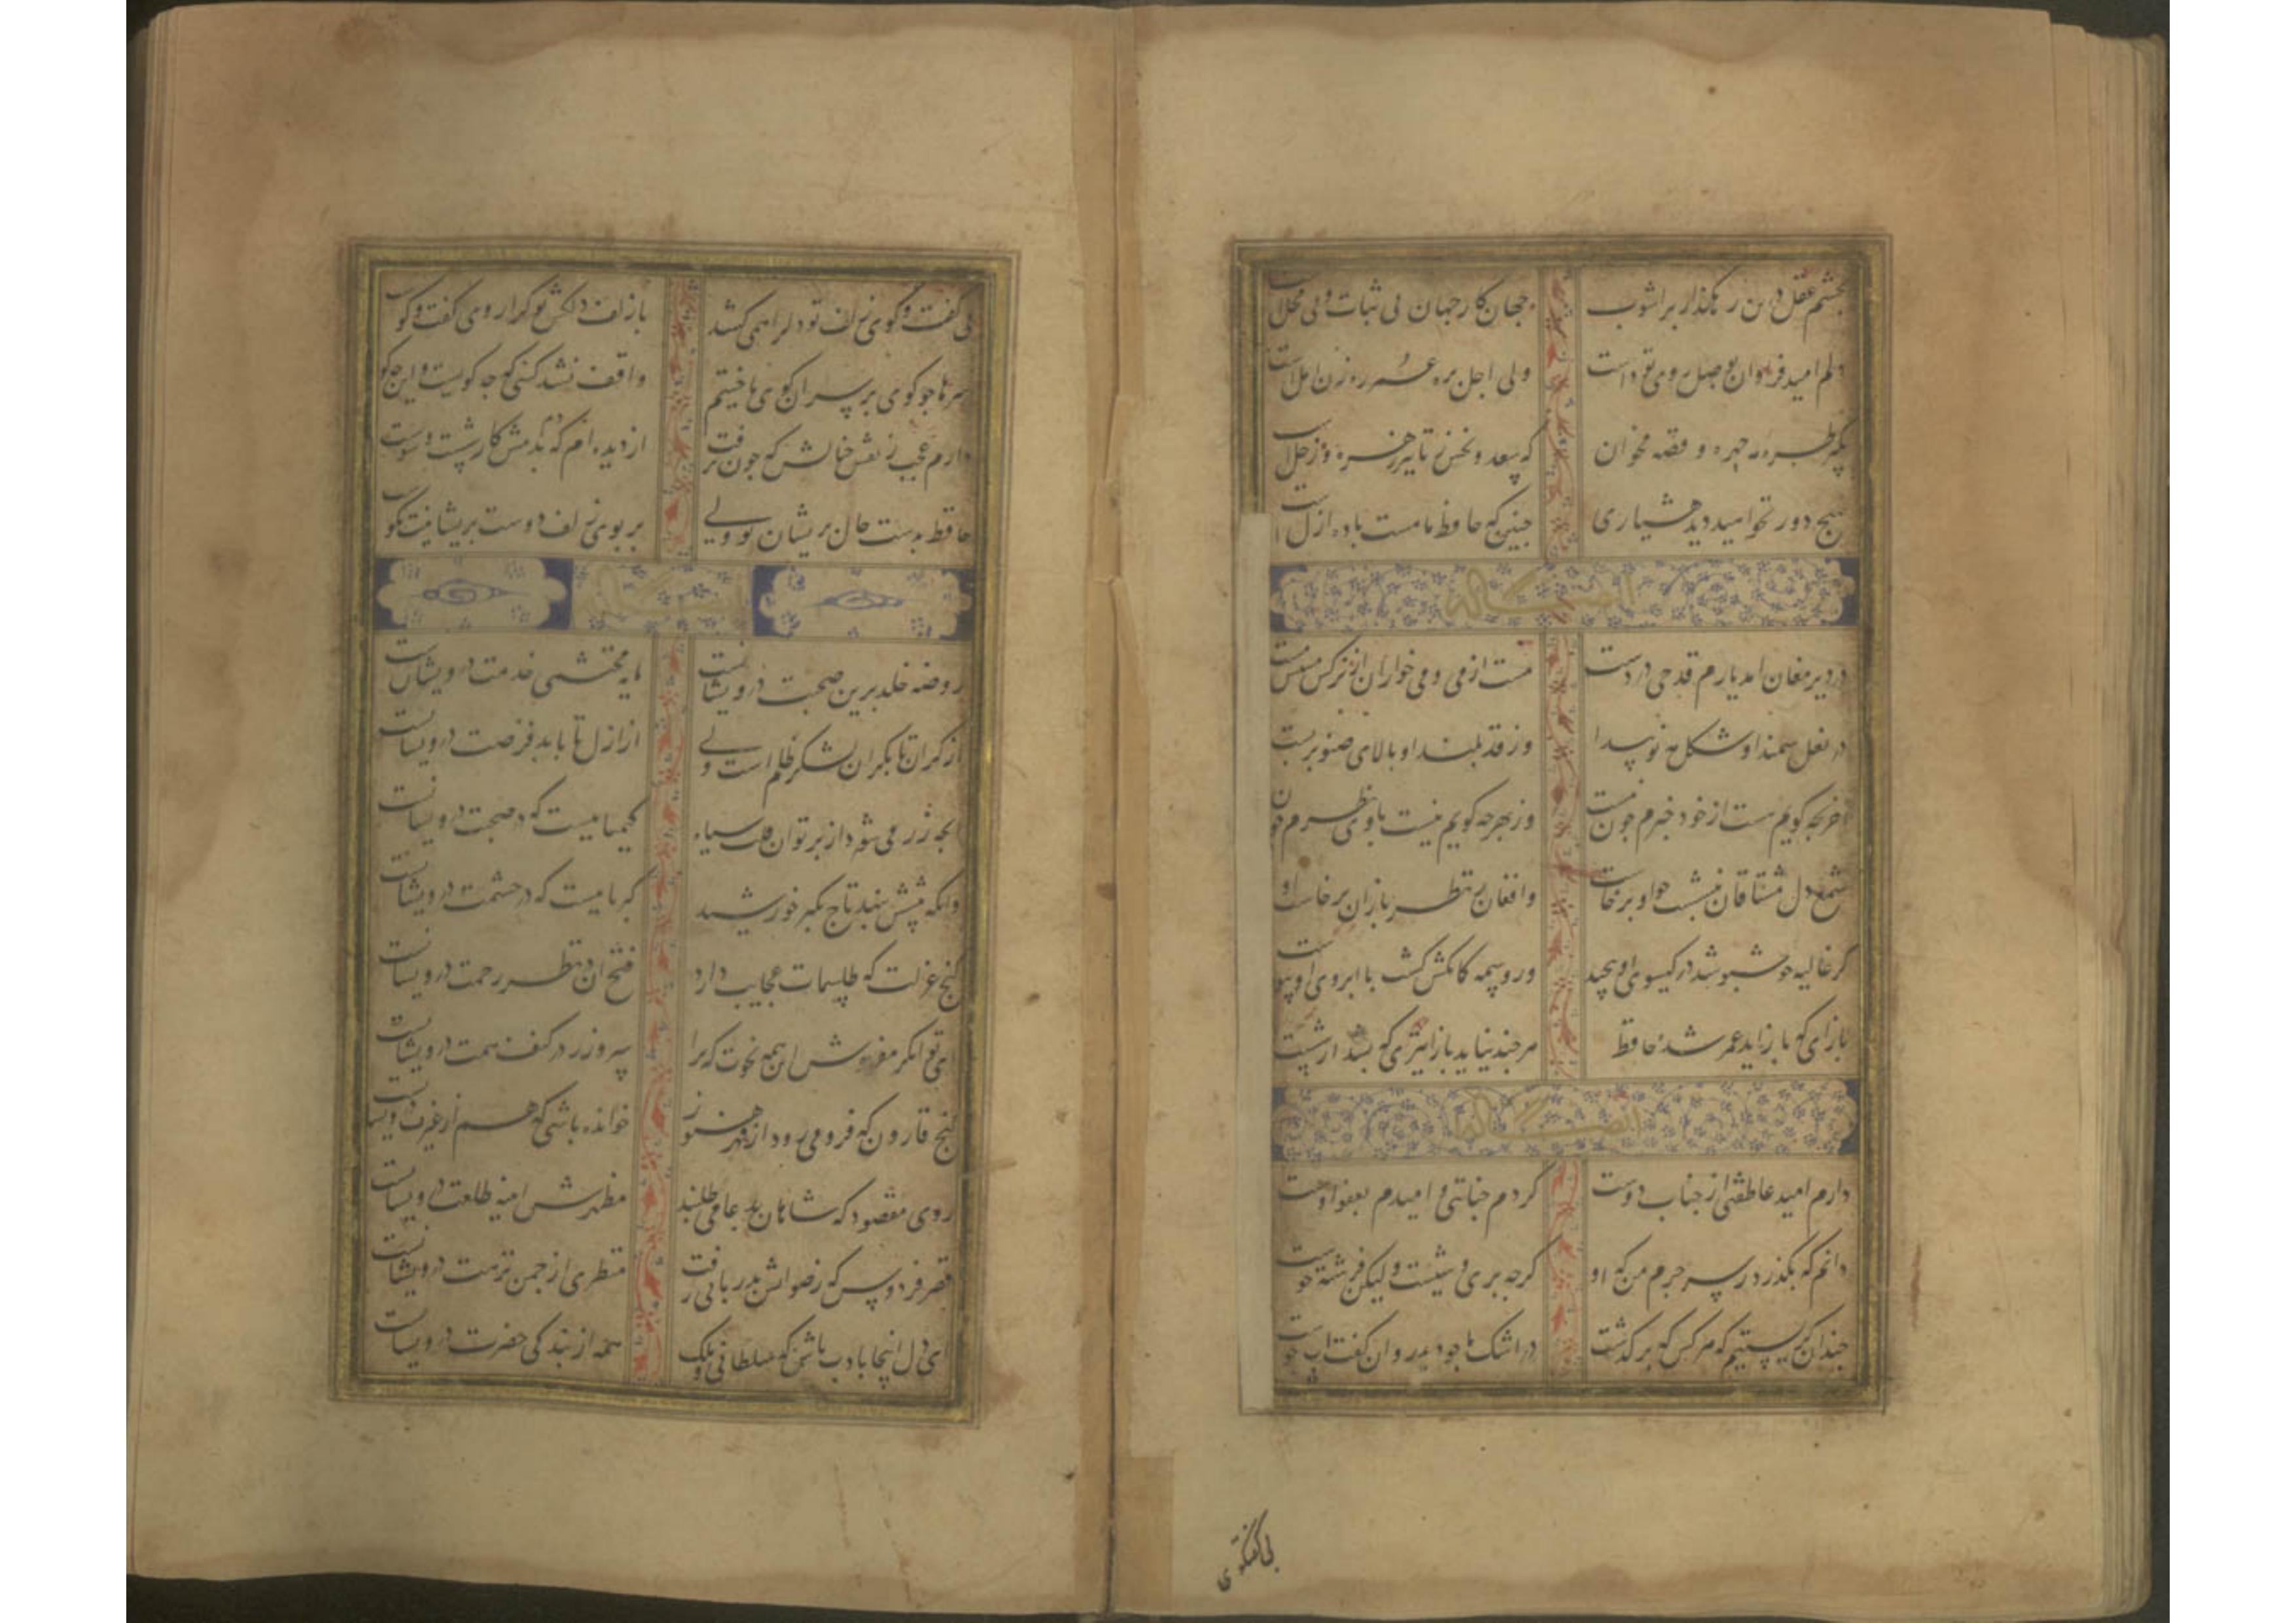 بچشم عقل درین رهگذار پراشوب جهان و کار جهان بی ثبات و بی محلست
دلم امید فراوان بوصل روی تو داشت ولی اجل بره عمر رهزن املست
بگیر طره مه چهره و قصه مخوان که سعد و نحس ز تاثیر زهره و زحلست
بهیچ دور نخواهید دید هشیاری چنین که حافظ ما مست باده ازلست
در دیر مغان امد یارم قدحی در دست مست از می و می خواران از نرکس مستش مست
در نعل سمند او شکل مه نو پیدا وز قد بلند او بالای صنوبر پست
اخر بچه کویم هست از خود خبرم چون نیست وز بهر چه کویم نیست با وی نظرم چون
شمع دل مشتاقان بنشست چو او برخاست و افغان ز نظربازان برخاست او
کر غالیه خوشبو شد در کیسوی او پیچید ور وسمه کمانکش کشت با ابروی او پیوست
بازای که باز اید عمر شده حافظ هر چند نیاید باز تیری که بشد از شست
دارم امید عاطفتی از جناب دوست کردم جنایتی و امیدم بعفو اوست
دانم که بکذرد ز سر جرم من که او کرچه پری وشیست ولیکن فرشته خوست
چندان کریستیم که هر کس که برکذشت در اشک ما چو دید روان کفت اب جوست
بی کفتکوی
بی کفت و کوی زلف تو دل را همی کشد با زلف دلکش تو کرا روی کفت و کوست
سرها چو کوی بر سر ان کوی باختیم واقف نشد کسی که چه کویست و این چه کو
دارم عجب ز نقش خیالش که چون نرفت از دیده ام که دم بدمش کار شست و شوست
حافظ بدست حال پریشان تو ولی بر بوی زلف دوست پریشانیت نکوست
روضه خلد برین صحبت درویشانست مایه محتشمی خدمت درویشانست
از کران تا بکران لشکر ظلم است ولی از ازل تا بابد فرصت درویشانست
انچه زر می شود از پرتو ان قلب سیاه کیمیاییست که در صحبت درویشانست
وانکه پیشش بنهد تاج تکبر خورشید کبریاییست که در حشمت درویشانست
کنج عزلت که طلسمات عجایب دارد فتح ان در نظر رحمت درویشانست
ای توانکر مفروش این همه نخوت که ترا سر و زر در کنف همت درویشانست
کنج قارون که فرو می رود از قهر هنوز خوانده باشی که هم از غیرت درویشانست
روی مقصود که شاهان بدعا می طلبند مظهرش اینه طلعت درویشانست
قصر فردوس که رضوانش بدربانی رفت منظری از چمن نزهت درویشانست
ای دل اینجا بادب باش که سلطانی و ملک همه از بندکی حضرت درویشانست